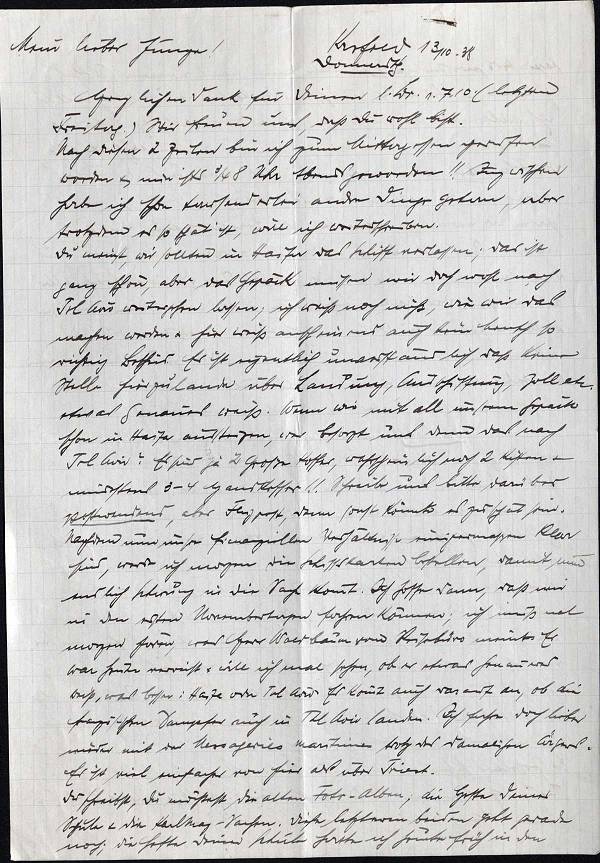 Mein lieber Junge! Krefeld 13/10.38
Donnerstg.
Herzlichen Dank für Deinen l. Br. v. 7.10 (letzten
Freitag.) Wir freuen uns, daß Du wohl bist.
Nach diesen 2 Zeilen bin ich zum Mittagessen gerufen
worden & nun ists 1/4 8 Uhr Abends geworden!! Inzwischen
habe ich tausenderlei andre Dinge getan, aber
trotzdem es so spät ist, will ich weiterschreiben.
Du meinst wir sollten in Haifa das Schiff verlassen; das ist
ganz schön, aber das Gepäck müssen wir doch wohl nach
Tel Aviv weitergehen lassen; ich weiß noch nicht, wie wir das
machen werden & hier weiß anscheinend auch kein Mensch so
richtig Bescheid. Es ist eigentlich unverständlich daß keine
Stelle hierzulande über Landung, Ausschiffung, Zoll etc.
etwas Genaues weiß. Wenn wir mit all unserm Gepäck
schon in Haifa aussteigen, wer besorgt uns denn das nach
Tel Aviv? Es sind ja 2 Große Koffer, wahrscheinlich noch 2 Kisten &
mindestens 3-4 Handkoffer!! Schreibe uns bitte darüber
postwendend, aber Flugpost, denn sonst könnte es zu spät sein.
Nachdem nun unsre finanziellen Verhältnisse einigermassen klar
sind, werde ich morgen die Schiffskarten bestellen, damit nun
endlich Schwung in die Sache kommt. Ich hoffe dann, daß wir
in den ersten Novembertagen fahren können; ich muß mal
morgen hören, was Herr Waldbaum vom Reisebüro meint. Er
war heute verreist & will ich mal sehen, ob er etwas Genaueres
weiß, was besser: Haifa oder Tel Aviv. Es kommt auch darauf an, ob die
Dampfer auch in Tel Aviv landen. Ich fahre doch lieber
wieder mit der Messageries maritimes trotz des damaligen
Es ist viel einfacher von hier als über Triest.
Du schreibst, Du möchtest die alten Foto-Alben, die Hefte Deiner
Schule & die Karl May-Sachen. Die letzteren beiden geht gerade
noch; die Hefte Deiner Schule hatte ich heute früh in den